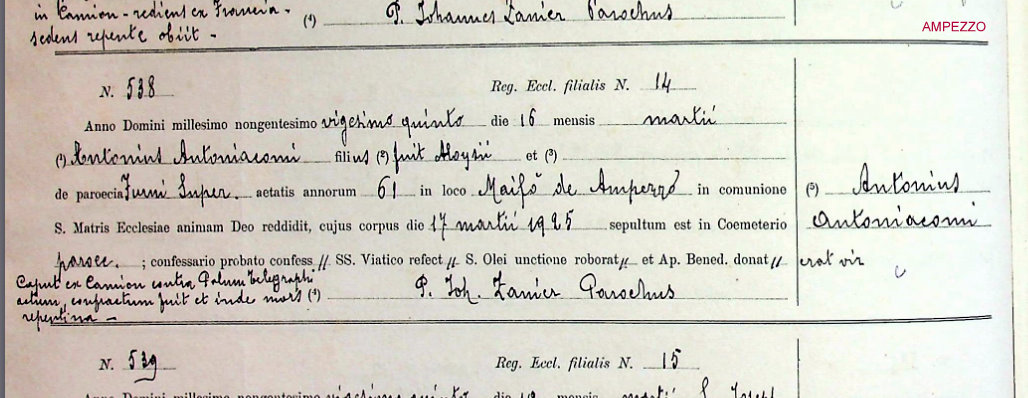 in Camion - rediens ex Francia -
sedens repente obiit -
(4) P. Johannes Zanier Parochus
AMPEZZO
N. 538 Reg. Eccl. filialis N. 14
Anno Domini millesimo nongentesimo vigesimo quinto die 16 mensis martii
(1) Antonius Antoniacomi filius (2) fuit Aloysii et (3)
de paroecia Furni Super. aetatis annorum 61 in loco de Ampezzo in comunione
S. Matris Ecclesiae animam Deo reddidit, cujus corpus die 17 martii 1925 sepultum est in Coemeterio
paroec. ; confessario probato confess // SS. Viatico refect // S. Olei unctione roborat // et Ap. Bened. donat //
(5) Antonius
Antoniacomi
erat vir
Caput ex Camion contra Palum telegraphi
actum, confractum fuit et inde mors
repentina -
(4) P. Joh. Zanier Parochus
N. 539 Reg. Eccl. filialis N. 15
Anno Domini millesimo nongentesimo vigesimo quinto die mensis martii